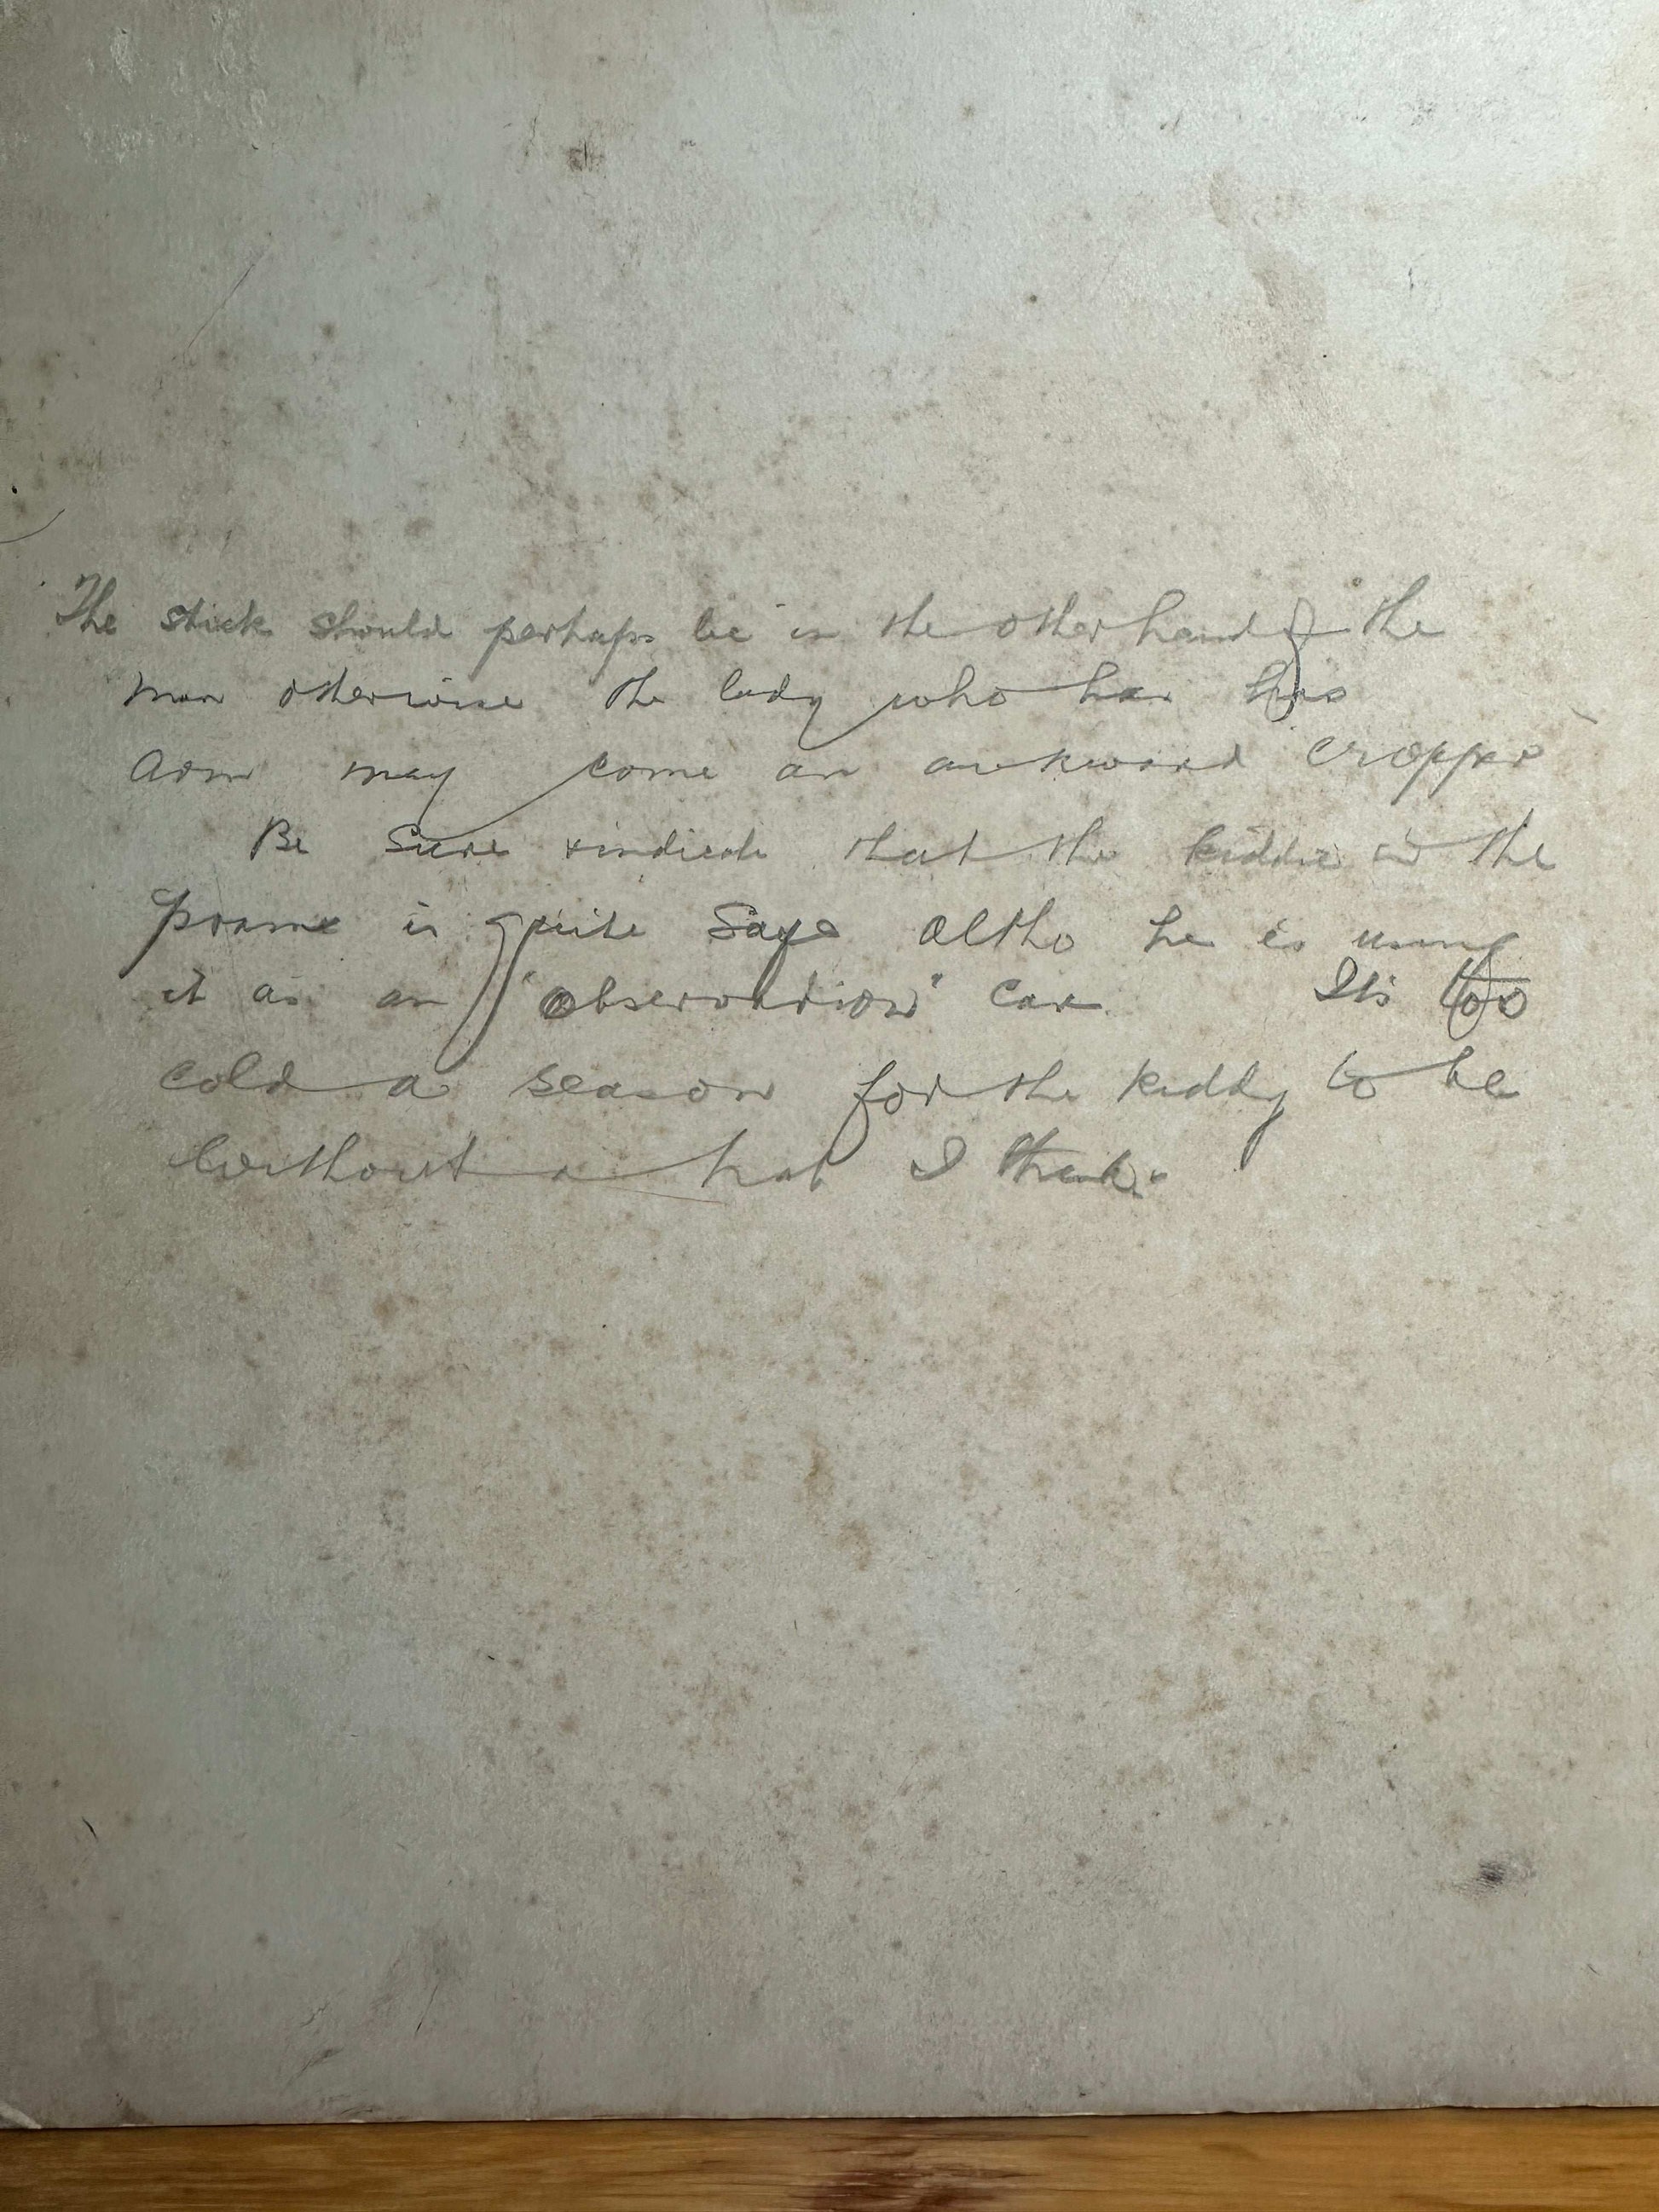 The stick should perhaps be in the other hand of the
man otherwise the lady who has his
arm may come an awkward cropper
Be sure & indicate that the kiddie in the
prame is quite safe altho he is using
it as an "observation" car. Its too
cold a season for the kiddy to be
without a hat I think.